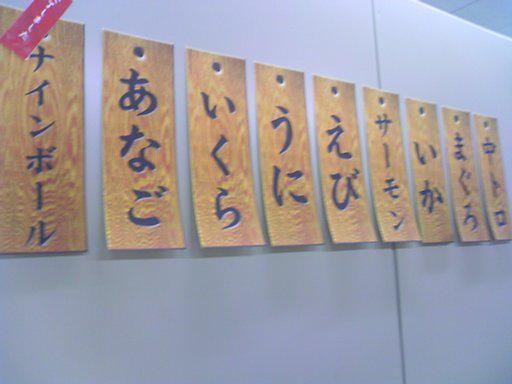 ナインボール
あなご
いくら
うに
えび
サーモン
いか
まぐろ
中トロ